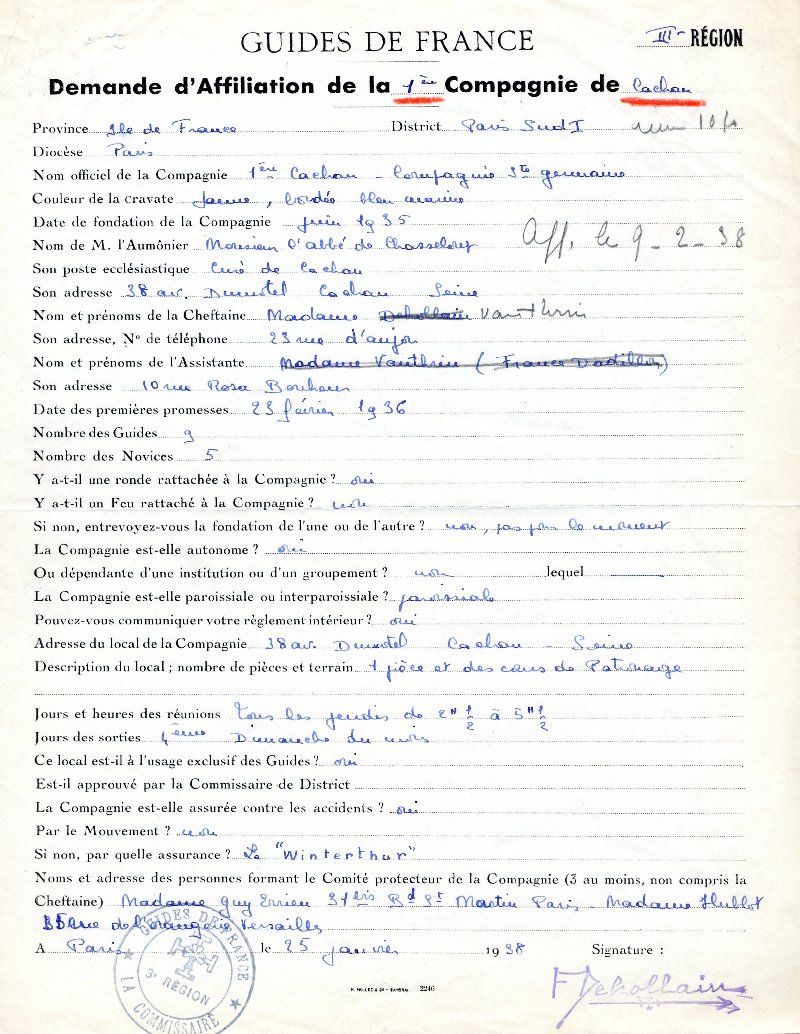 GUIDES DE FRANCE
III RÉGION
Demande d'Affiliation de la 1ère Compagnie de Cachan
Province Ile de France District Paris Sud I
Diocèse Paris
Nom officiel de la Compagnie 1ère Cachan - Compagnie Ste germaine
Couleur de la cravate Jaune, bordée bleu marine
Date de fondation de la Compagnie juin 1935
Nom de M. l'Aumônier Monsieur l'abbé de Chasseloup
Aff. le 9-2-38
Son poste ecclésiastique Curé de Cachan
Son adresse 38 av. Dumotel Cachan Seine
Nom et prénoms de la Cheftaine Madame Dehollain Vauthrin
Son adresse, No de téléphone 23 rue d'anjou
Nom et prénoms de l'Assistante Madame Vauthrin (France Dodillon)
Son adresse 10 rue Rosa Bonheur
Date des premières promesses 23 février 1936
Nombre des Guides 9
Nombre des Novices 5
Y a-t-il une ronde rattachée à la Compagnie ? oui
Y a-t-il un Feu rattaché à la Compagnie ? non
Si non, entrevoyez-vous la fondation de l'une ou de l'autre ? non, pas pour le moment
La Compagnie est-elle autonome ? oui
Ou dépendante d'une institution ou d'un groupement ? non lequel
La Compagnie est-elle paroissiale ou interparoissiale ? paroissiale
Pouvez-vous communiquer votre règlement intérieur ? oui
Adresse du local de la Compagnie 38 av. Dumotel Cachan - Seine
Description du local ; nombre de pièces et terrain 1 pièce et des cours de Patronage
Jours et heures des réunions tous les jeudis de 2H 1/2 à 5H 1/2
Jours des sorties 4ème Dimanche du mois
Ce local est-il à l'usage exclusif des Guides ? oui
Est-il approuvé par la Commissaire de District
La Compagnie est-elle assurée contre les accidents ? oui
Par le Mouvement ? non
Si non, par quelle assurance ? La "Winterthur"
Noms et adresse des personnes formant le Comité protecteur de la Compagnie (3 au moins, non compris la
Cheftaine) Madame guy Errien 31 bis Bd St Martin Paris - Madame Hublot
35 rue de l'orangerie Versailles
A Paris le 25 janvier 1938 Signature :
F Dehollain
GUIDES DE FRANCE
3e RÉGION
LA COMMISSAIRE
2246